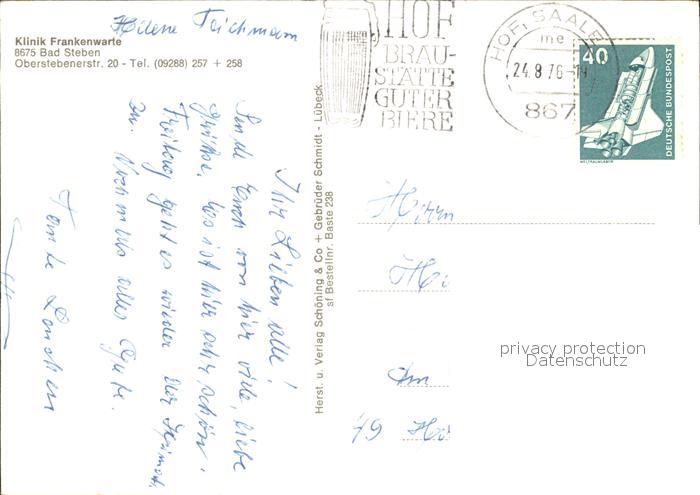 Helene Teichmann
Klinik Frankenwarte
8675 Bad Steben
Oberstebenerstr. 20 - Tel. (09288) 257 + 258
HOF
BRAU-
STÄTTE
GUTER
BIERE
HOF, SAALE
me
24.8.76-1
867
40
DEUTSCHE BUNDESPOST
WELTRAUMLABOR
Ihr Lieben alle!
Sende Euch von hier viele, liebe
Grüße. Es ist hier sehr schön.
Freitag geht es wieder der Heimat
zu. Nochmals alles Gute.
Tante Lenchen
Herst. u. Verlag Schöning & Co + Gebrüder Schmidt - Lübeck
sf Bestellnr. Baste 238
Herrn
Am
49
privacy protection
Datenschutz